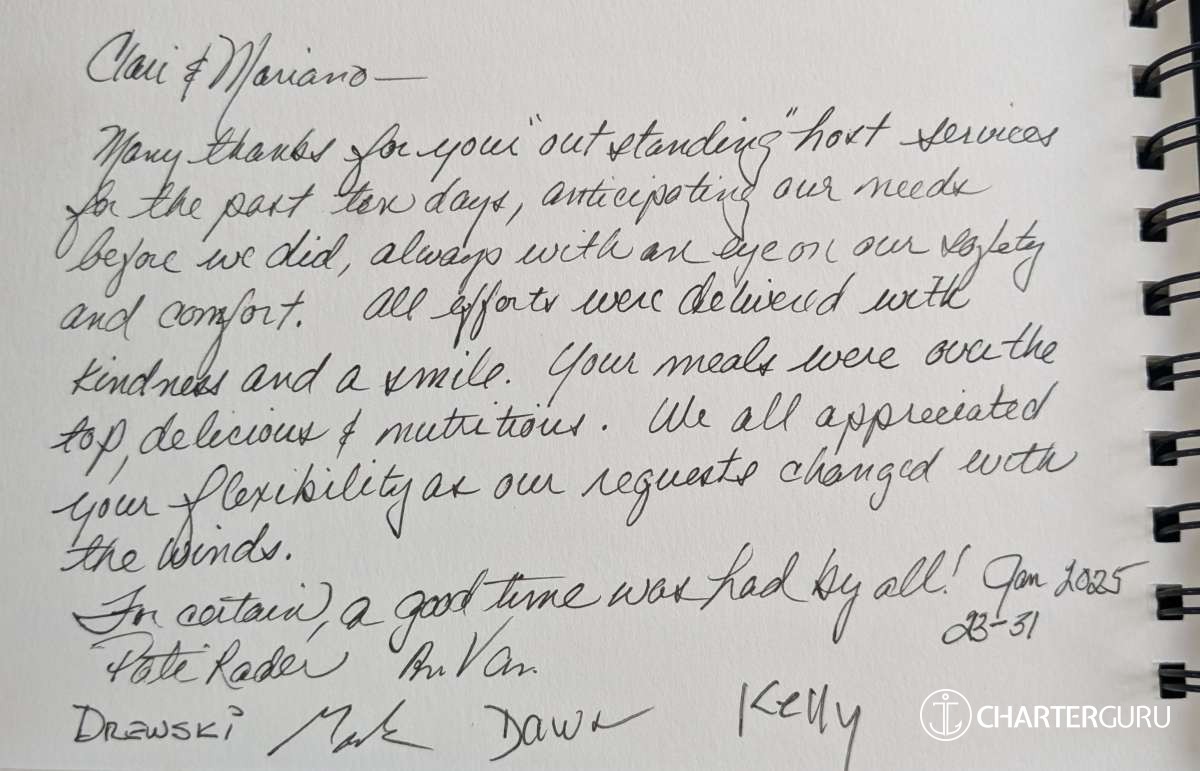 Clari & Mariano —
Many thanks for your "outstanding" host services
for the past ten days, anticipating our needs
before we did, always with an eye on our safety
and comfort. All efforts were delivered with
kindness and a smile. Your meals were over the
top, delicious & nutritious. We all appreciated
your flexibility as our requests changed with
the winds.
For certain, a good time was had by all! Jan 2025
23-31
Rader Van
DREWSKi Mark Dawn Kelly
CHARTERGURU